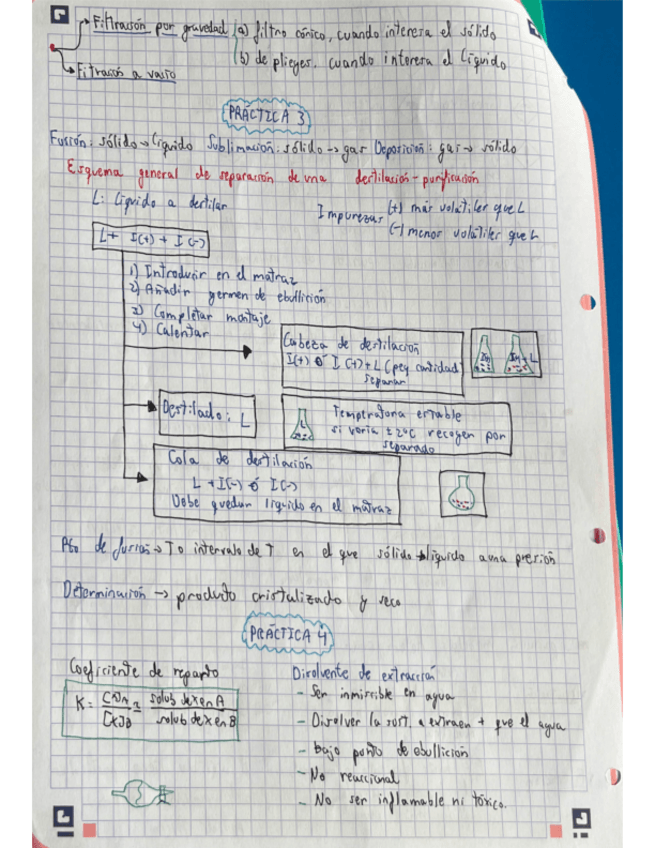 Filtración por gravedad (a) filtro cónico, cuando interesa el sólido
(b) de pliegues. cuando interesa el líquido
Filtración a vacío
PRÁCTICA 3
Fusión: sólido → líquido Sublimación: sólido → gas Deposición: gas → sólido
Esquema general de separación de una destilación - purificación
L: líquido a destilar
Impurezas (+) más volátiles que L
(-) menor volátiles que L
L + I(+) + I(-)
1) Introducir en el matraz
2) Añadir germen de ebullición
3) Completar montaje
4) Calentar
Cabeza de destilación
I(+) ó I(+) + L (peq cantidad
separar
I(+) + L
Destilado: L
L
Tempratora estable
si varía ± 2ºC recogen por
separado
Cola de destilación
L + I(-) ó I(-)
Debe quedar líquido en el matraz
Pto de fusión → T o intervalo de T en el que sólido → líquido a una presión
Determinación → produto cristalizado y seco
PRÁCTICA 4
Coeficiente de reparto
K = [X]A = solub de x en A
[X]B solub de x en B
Disolvente de extracción
- Ser inmiscible en agua
- Disolver la sust. a extraen + que el agua
- bajo punto de ebullición
- No reaccional
- No ser inflamable ni tóxico.